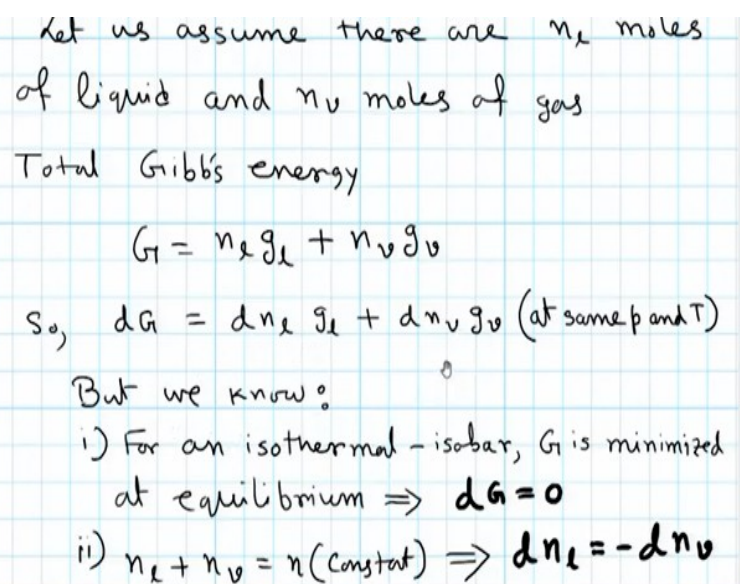 Let us assume there are nₗ moles
of liquid and nᵥ moles of gas
Total Gibb's energy
G = nₗgₗ + nᵥgᵥ
So, dG = dnₗ gₗ + dnᵥ gᵥ (at same p and T)
But we know:
i) For an isothermal - isobar, G is minimized
at equilibrium ⇒ dG = 0
ii) nₗ + nᵥ = n (Constat) ⇒ dnₗ = -dnᵥ